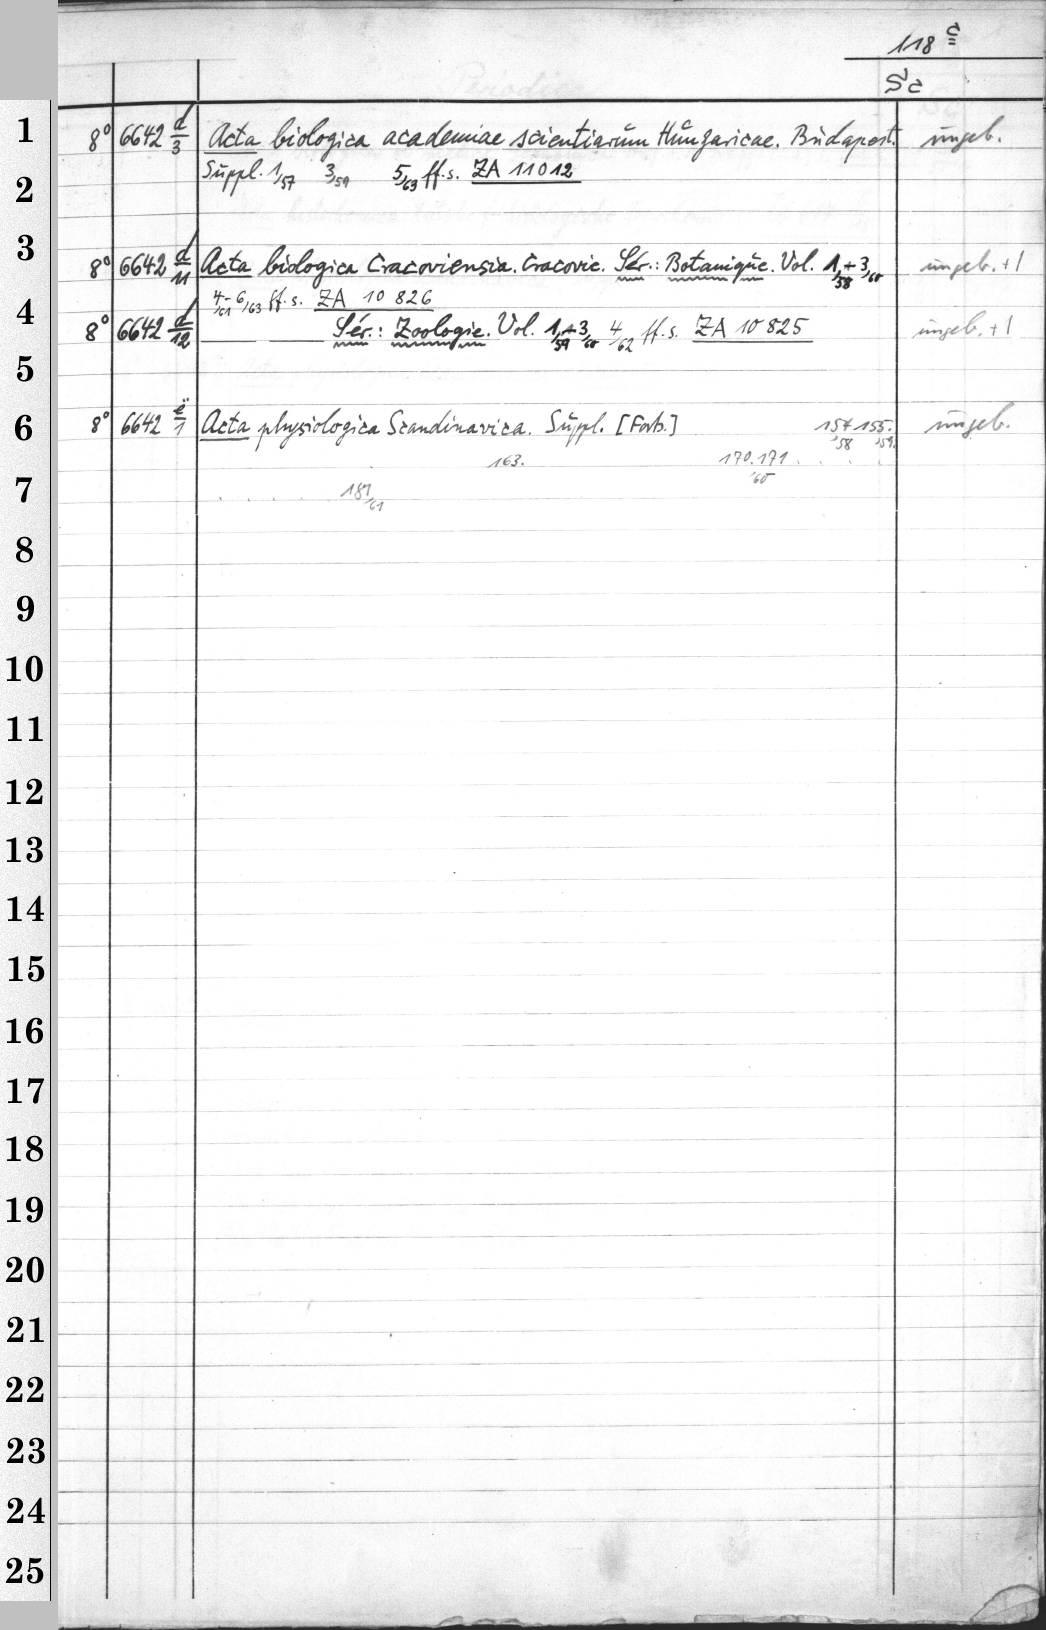 118 c
Sc
1 8° 6642 d/3 Acta biologica academiae scientiarum Hungaricae. Budapest. ungeb.
2 Suppl. 1/57 3/59 5/63 ff. s. ZA 11012
3 8° 6642 d/11 Acta biologica Cracoviensia. Cracovie. Sér.: Botanique. Vol. 1/58 + 3/60 ungeb. + 1
4-6/61 /63 ff. s. ZA 10 826
4 8° 6642 d/12 —— —— Sér.: Zoologie. Vol. 1/59 + 3/60 4/62 ff. s. ZA 10 825 ungeb. + 1
5
6 8° 6642 e/1 Acta physiologica Scandinavica. Suppl. [Forts.] 154/58 155/59. ungeb.
163. 170.171/'60 . . . .
7 . . . . . 181/61
8
9
10
11
12
13
14
15
16
17
18
19
20
21
22
23
24
25